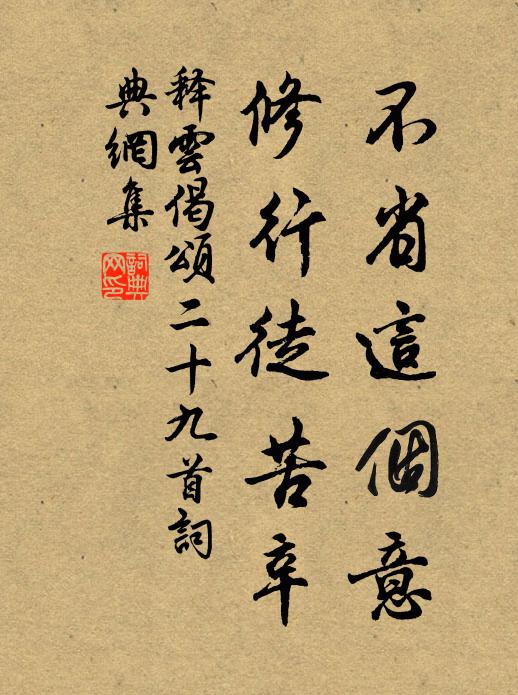 不省這個意
修行徒苦辛
釋雲偈頌二十九首詞
典網集
詞典网印